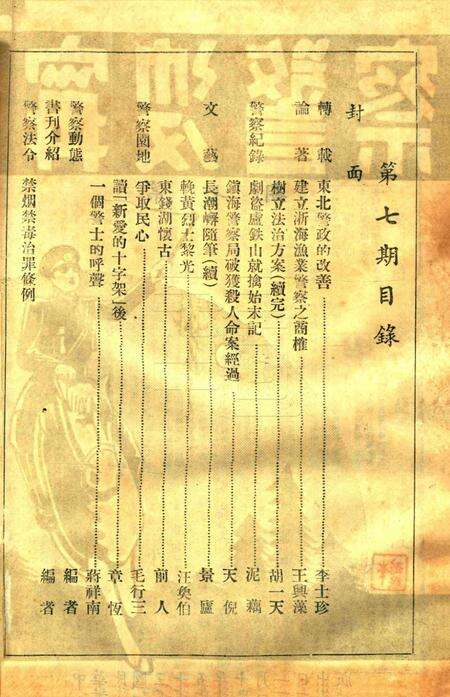 第七期目錄
封面
轉載　東北警政的改善……李士珍
論著　建立浙海漁業警察之商榷……王興漢
樹立法治方案(續完)……胡一天
警察紀錄　劇盜盧鉄山就擒始末記……泥藕
鎮海警察局破獲殺人命案經過……天倪
文藝　長潮嶼隨筆(續)……景廬
輓黃烈士黎光……汪奐伯
東錢湖懷古……前人
警察園地　爭取民心……毛行三
讀「新愛的十字架」後……章恆
一個警士的呼聲……蔣祥南
警察動態……編者
書刊介紹……編者
警察法令　禁烟禁毒治罪條例